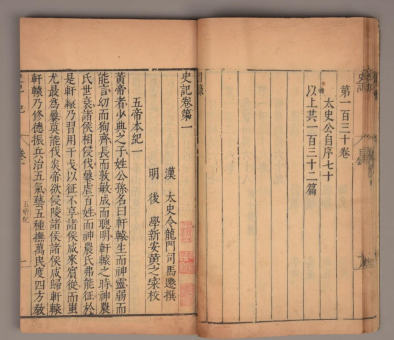 第一百三十卷
太史公自序七十
以上共一百三十二篇
史記卷第一
漢 太史令龍門司馬遷撰
明 後學新安黃之寀校
五帝本紀一
黃帝者少典之子姓公孫名曰軒轅生而神靈弱而
能言幼而徇齊長而敦敏成而聰明軒轅之時神農
氏世衰諸侯相侵伐暴虐百姓而神農氏弗能征於
是軒轅乃習用干戈以征不享諸侯咸來賓從而蚩
尤最為暴莫能伐炎帝欲侵陵諸侯諸侯咸歸軒轅
軒轅乃修德振兵治五氣藝五種撫萬民度四方教